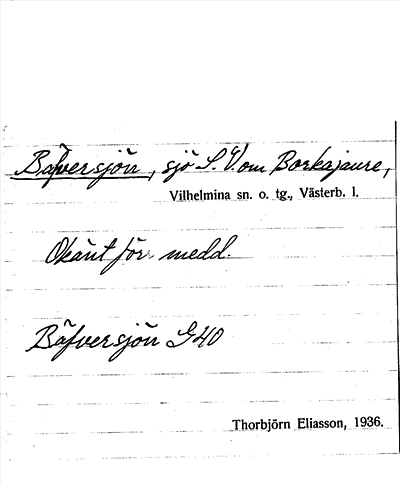 Bäfversjön, sjö S.V. om Borkajaure,
Vilhelmina sn. o. tg., Västerb. l.
Okänt för medd.
Bäfversjön G40
Thorbjörn Eliasson, 1936.